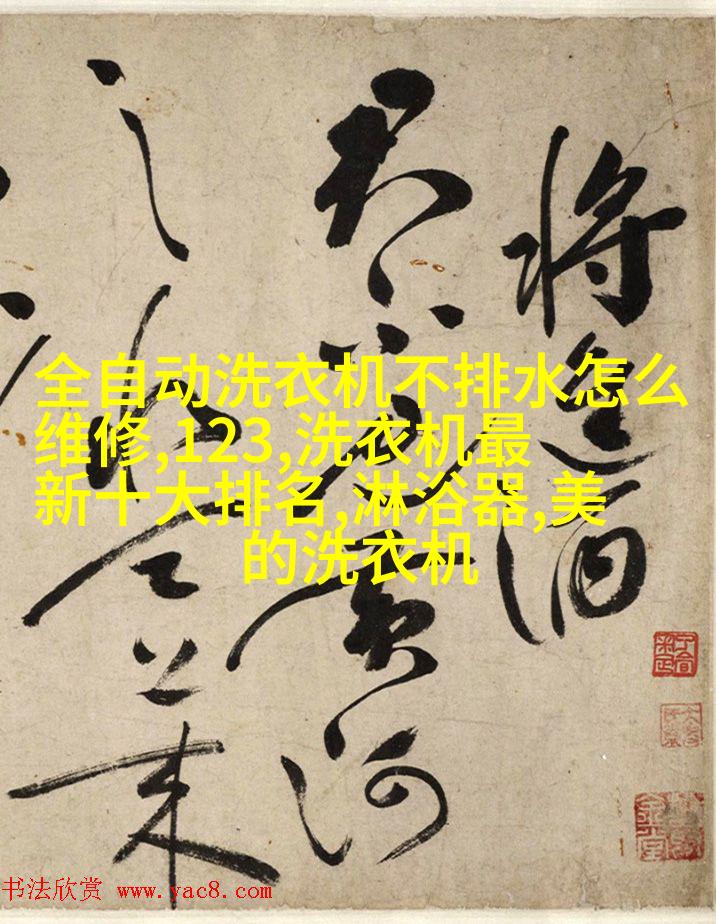 将進酒
君不見黃河
之水天上来
全自动洗衣机不排水怎么
维修,123,洗衣机最
新十大排名,淋浴器,美
的洗衣机
书法欣赏 www.yac8.com